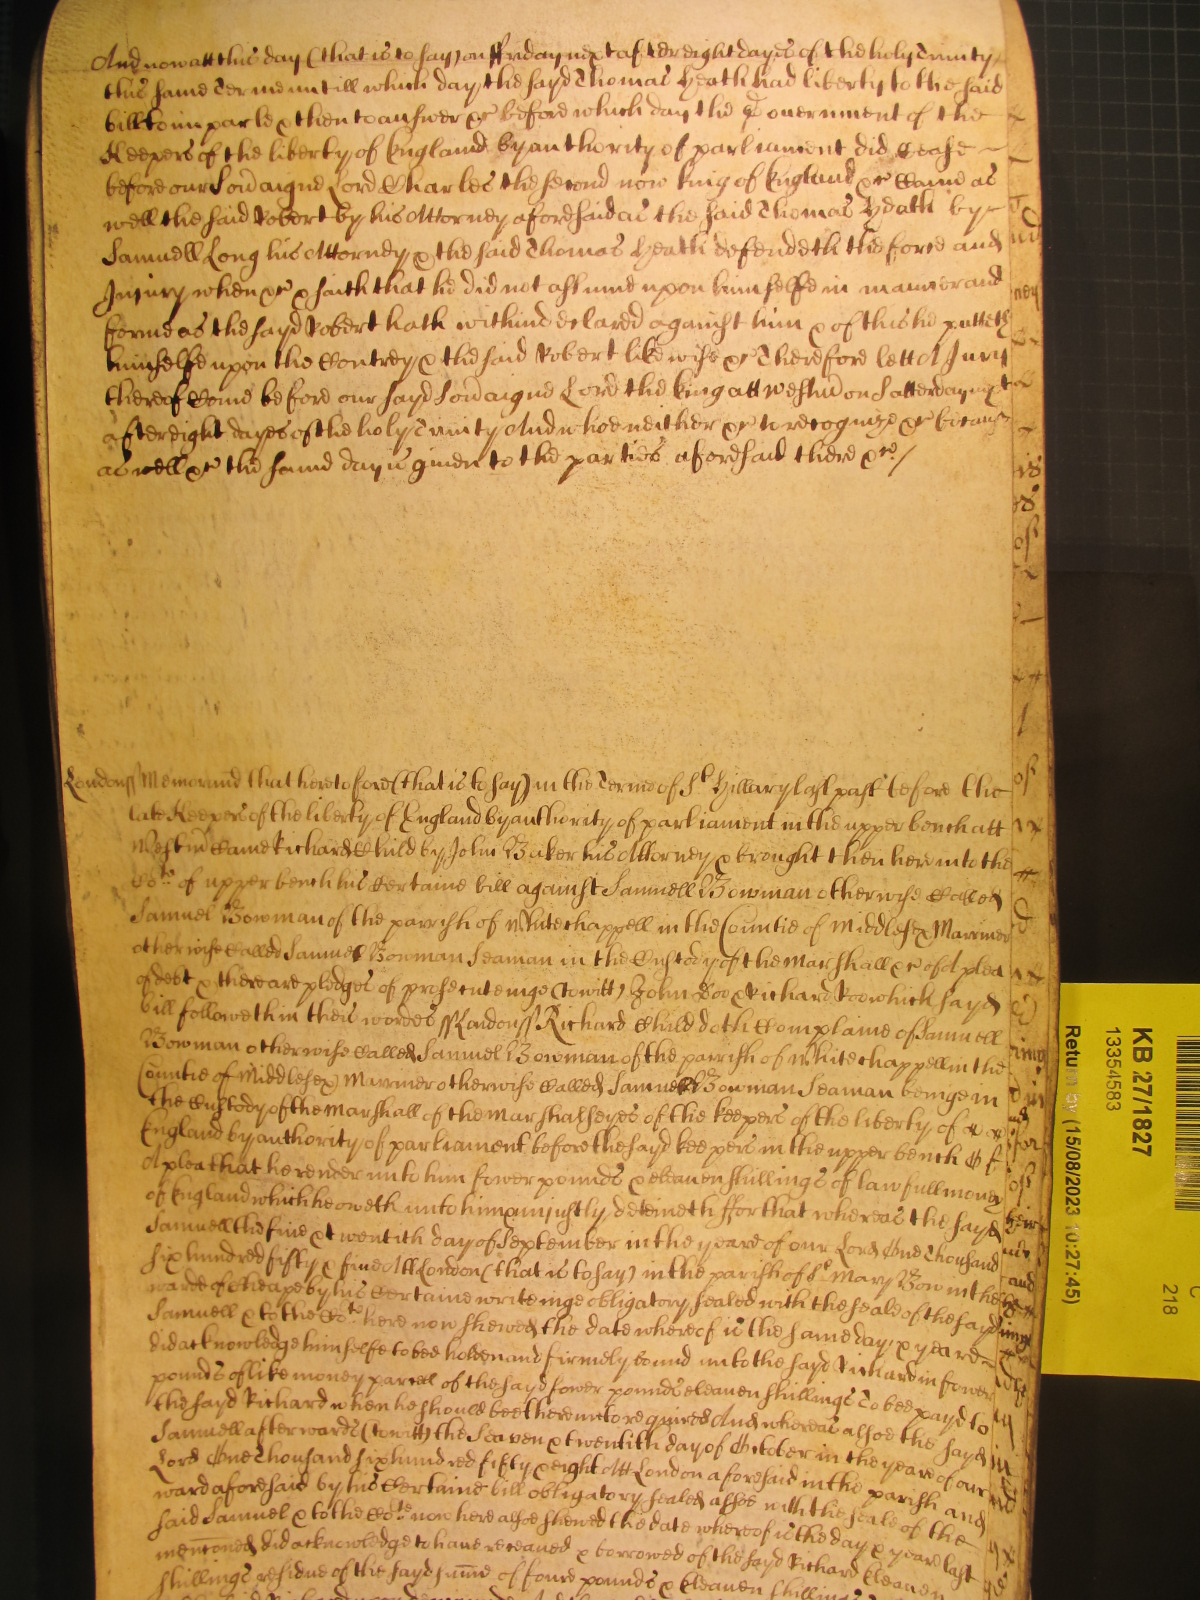 And now att this day (that is to say) on ffriday next after eight dayes of the holy Trinity
this same Terme untill which day the sayd Thomas Heath had liberty to the said
bill to imparle & then to answer &c before which day the Gouernment of the
Keepers of the liberty of England by authority of parliament did Cease
before our Sovaigne Lord Charles the second now king of England &c Came as
well the said Robert by his Attorney aforesaid as the said Thomas Heath by
Samuell Long his Attorney & the said Thomas Heath defendeth the force and
Injury when &c & saith that he did not assume upon himselfe in manner and
forme as the sayd Robert hath within declared against him & of this he putteth
himselfe upon the Contrey & the said Robert likewise &c Therefore lett A Jury
thereof Come before our sayd Sovaigne Lord the king att Westm on Satterday next
after eight dayes of the holy Trinity And who neither &c to recognize &c because
as well &c the same day is giuen to the parties aforesaid there &c/
Londonss Memorand that heretofore (that is to say) in the Terme of St Hillary last past before the
late Keepers of the liberty of England by authority of parliament in the upper bench att
Westm Came Richard Child by John Baker his Attorney & brought then here into the
Cote of upper bench his Certaine bill against Samuell Bowman otherwise Called
Samuel Bowman of the parrish of Whitechappell in the Countie of Middlesex Marriner
otherwise Called Samuel Bowman Seaman in the Custody of the Marshall &c of A plea
of debt & there are pledges of prosecuteinge (towitt) John Doo & Richard Roo which sayd
bill followeth in theis wordes ss Londonss Richard Child doth Complaine of Samuell
Bowman otherwise Called Samuel Bowman of the parrish of Whitechappell in the
Countie of Middlesex Marriner otherwise Called Samuel Bowman Seaman beinge in
the Custody of the Marshall of the Marshalseyes of the keepers of the liberty of
England by authority of parliament before the sayd keepers in the upper bench Of
A plea that he render unto him fower pounds & eleauen shillings of lawfull money
of England which he oweth unto him & unjustly deteineth ffor that whereas the sayd
Samuell the fiue & twentith day of September in the yeare of our Lord One Thousand
six hundred fifty & fiue Att London (that is to say) in the parish of St Mary Bow in the
warde of Cheape by his Certaine writeinge obligatory sealed with the seale of the sayd
Samuell & to the Cote here now shewed the date whereof is the same day & yeare
did acknowledge himselfe to bee holden and firmely bound unto the sayd Richard in fower
pounds of like money parcell of the sayd fower pounds eleauen shillings To bee payd to
the sayd Richard when he should bee thereunto required And whereas alsoe the sayd
Samuell afterwards (towitt) the Seaven & twentith day of October in the yeare of our
Lord One Thousand six hundred fifty & eight Att London aforesaid in the parish and
ward aforesaid by his Certaine bill obligatory sealed alsoe with the seale of the
said Samuel & to the Cote now here alsoe shewed the date whereof is the day & yeare last
menconed did acknowledge to haue receaued & borrowed of the sayd Richard Eleauen
shillings residue of the sayd sume of foure pounds & Eleauen shillings
KB 27/1827
13354583
Return by (15/08/2023 10:27:45)
C
218